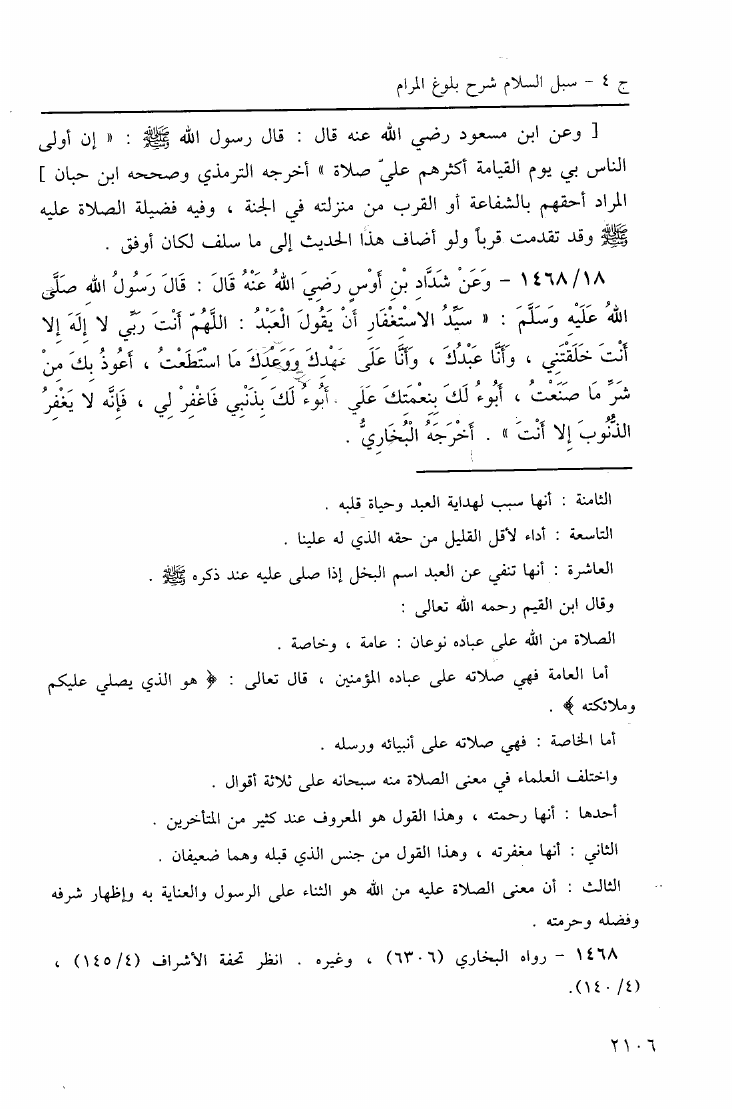 ج ٤ - سبل السلام شرح بلوغ المرام
[ وعن ابن مسعود رضي الله عنه قال : قال رسول الله ﷺ : « إن أولى
الناس بي يوم القيامة أكثرهم عليّ صلاة » أخرجه الترمذي وصححه ابن حبان ]
المراد أحقهم بالشفاعة أو القرب من منزلته في الجنة ، وفيه فضيلة الصلاة عليه
ﷺ وقد تقدمت قرباً ولو أضاف هذا الحديث إلى ما سلف لكان أوفق .
١٤٦٨/١٨ - وَعَنْ شَدَّادِ بْنِ أَوْسٍ رَضِيَ اللهُ عَنْهُ قَالَ : قَالَ رَسُولُ اللهِ صَلَّى
اللهُ عَلَيْهِ وَسَلَّمَ : « سَيِّدُ الاسْتِغْفَارِ أَنْ يَقُولَ الْعَبْدُ : اللَّهُمّ أَنْتَ رَبِّي لا إِلَهَ إِلا
أَنْتَ خَلَقْتَنِي ، وَأَنَا عَبْدُكَ ، وَأَنَا عَلَى عَهْدِكَ وَوَعْدِكَ مَا اسْتَطَعْتُ ، أَعُوذُ بِكَ مِنْ
شَرِّ مَا صَنَعْتُ ، أَبُوءُ لَكَ بِنِعْمَتِكَ عَلَي . أَبُوءُ لَكَ بِذَنْبِي فَاغْفِرْ لِي ، فَإِنَّه لا يَغْفِرُ
الذُّنُوبَ إِلا أَنْتَ » . أَخْرَجَهُ الْبُخَارِيُّ .
الثامنة : أنها سبب لهداية العبد وحياة قلبه .
التاسعة : أداء لأقل القليل من حقه الذي له علينا .
العاشرة : أنها تنفي عن العبد اسم البخل إذا صلى عليه عند ذكره ﷺ .
وقال ابن القيم رحمه الله تعالى :
الصلاة من الله على عباده نوعان : عامة ، وخاصة .
أما العامة فهي صلاته على عباده المؤمنين ، قال تعالى : ﴿ هو الذي يصلي عليكم
وملائكته ﴾ .
أما الخاصة : فهي صلاته على أنبيائه ورسله .
واختلف العلماء في معنى الصلاة منه سبحانه على ثلاثة أقوال .
أحدها : أنها رحمته ، وهذا القول هو المعروف عند كثير من المتأخرين .
الثاني : أنها مغفرته ، وهذا القول من جنس الذي قبله وهما ضعيفان .
الثالث : أن معنى الصلاة عليه من الله هو الثناء على الرسول والعناية به وإظهار شرفه
وفضله وحرمته .
١٤٦٨ - رواه البخاري (٦٣٠٦) ، وغيره . انظر تحفة الأشراف (١٤٥/٤) ،
(١٤٠/٤).
٢١٠٦